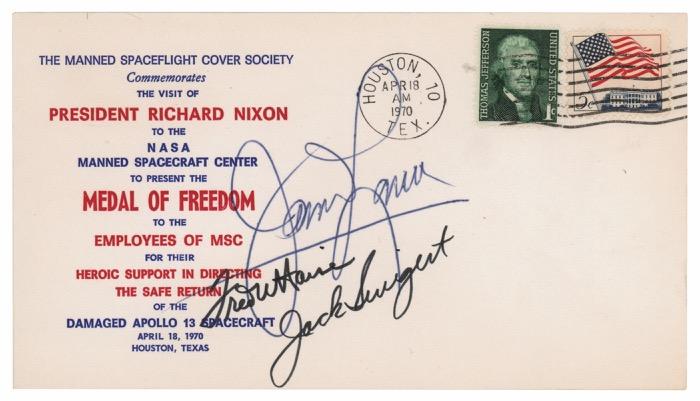 THE MANNED SPACEFLIGHT COVER SOCIETY
Commemorates
THE VISIT OF
PRESIDENT RICHARD NIXON
TO THE
NASA
MANNED SPACECRAFT CENTER
TO PRESENT THE
MEDAL OF FREEDOM
TO THE
EMPLOYEES OF MSC
FOR THEIR
HEROIC SUPPORT IN DIRECTING
THE SAFE RETURN
OF THE
DAMAGED APOLLO 13 SPACECRAFT
APRIL 18, 1970
HOUSTON, TEXAS
HOUSTON, 10
APR 18
AM
1970
TEX.
THOMAS JEFFERSON
UNITED STATES
1c
5c
Fred W Haise
Jack Swigert